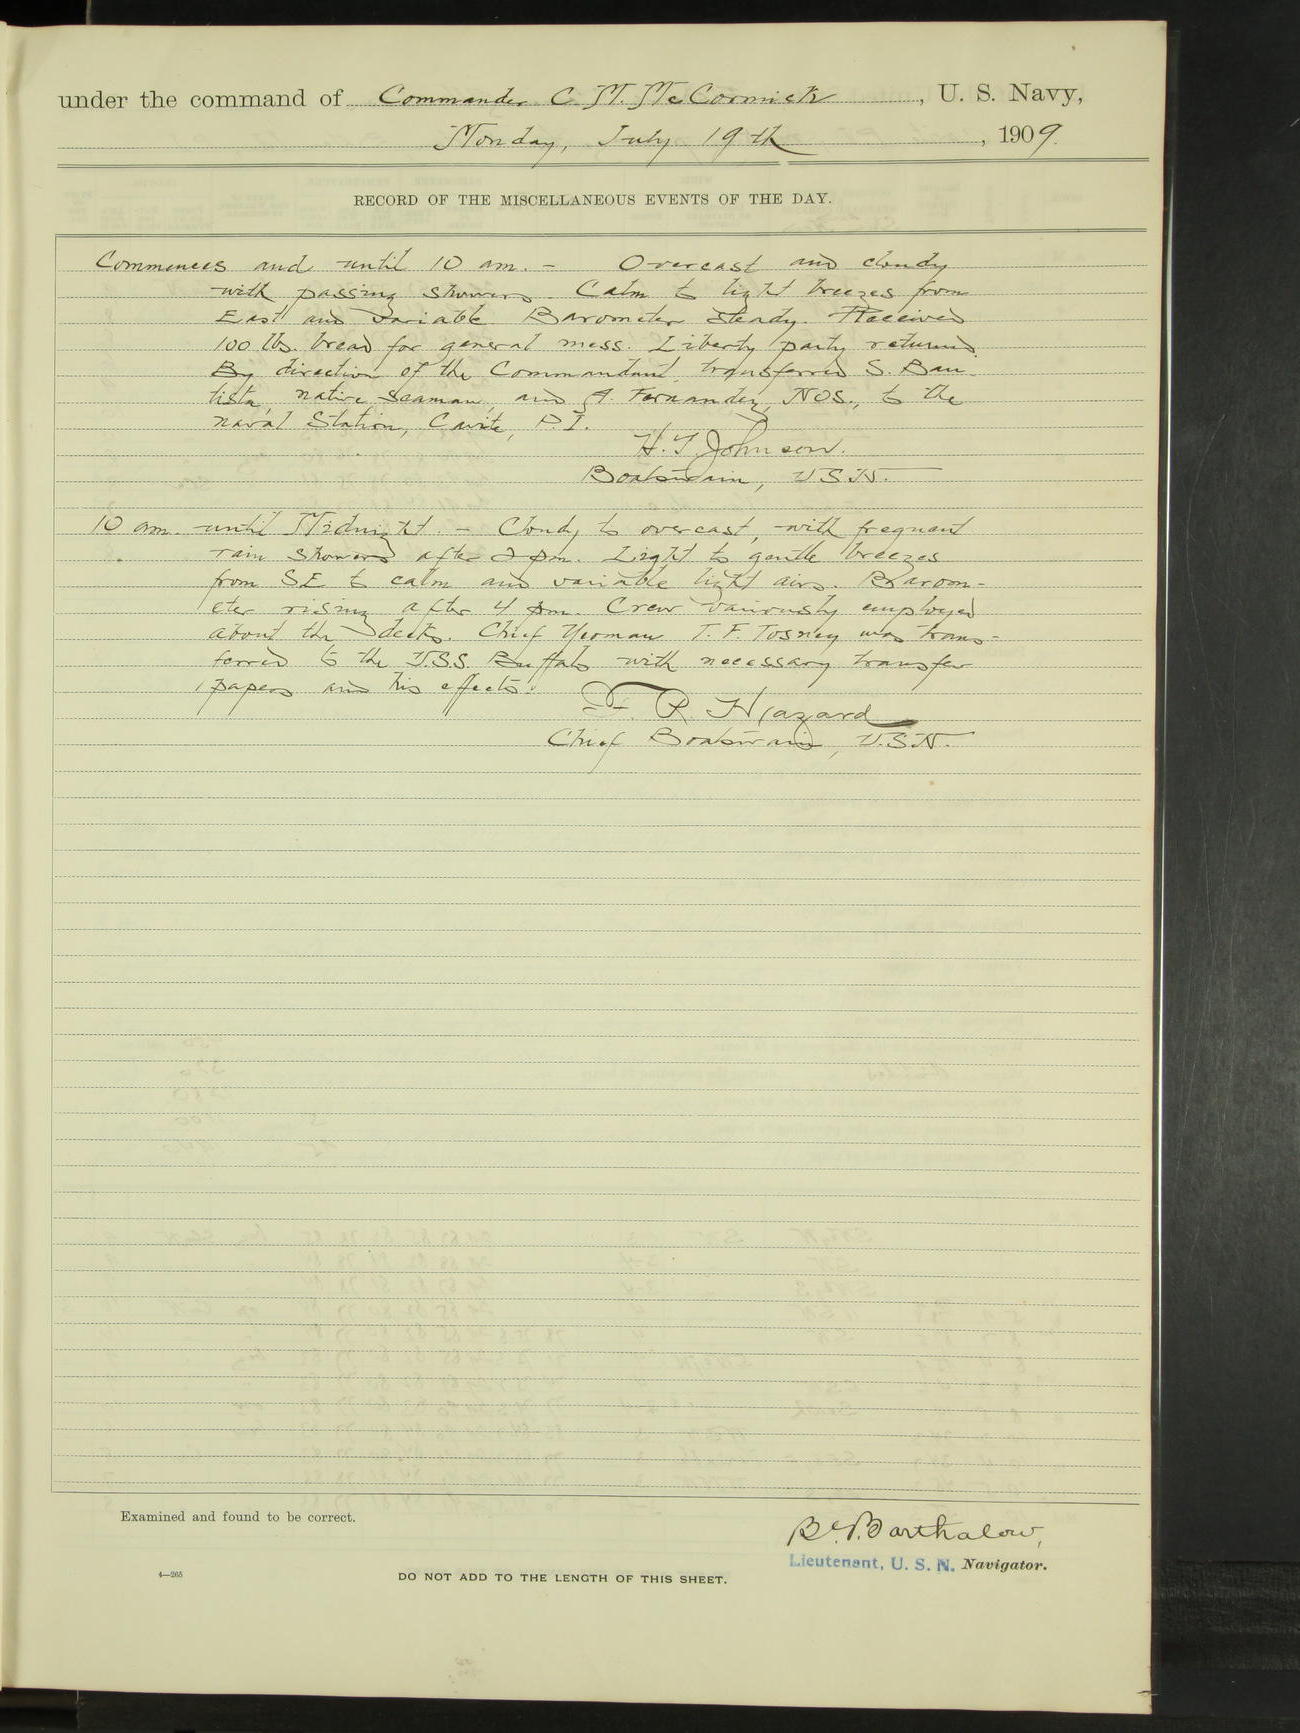 under the command of Commander C. M. McCormick, U. S. Navy,
Monday, July 19th, 1909.
RECORD OF THE MISCELLANEOUS EVENTS OF THE DAY.
Commences and until 10 am. - Overcast and cloudy
with passing showers. Calm to light breezes from
East and variable Barometer steady. Received
100 lbs. bread for general mess. Liberty party returned.
By direction of the Commandant, transferred S. Bau-
tista, native seaman, and A. Fernandez, NOS., to the
naval Station, Cavite, P.I.
H. T. Johnson.
Boatswain, USN.
10 am. until Midnight. - Cloudy to overcast, with frequent
rain showers after 2 pm. Light to gentle breezes
from SE to calm and variable light airs. Barom-
eter rising after 4 pm. Crew variously employed
about the decks. Chief Yeoman T. F. Tosney was trans-
ferred to the U.S.S. Buffalo with necessary transfer
papers and his effects.
F. R. Hazard
Chief Boatswain, U.S.N.
Examined and found to be correct.
Barthalow,
Lieutenant, U. S. N. Navigator.
4—265
DO NOT ADD TO THE LENGTH OF THIS SHEET.